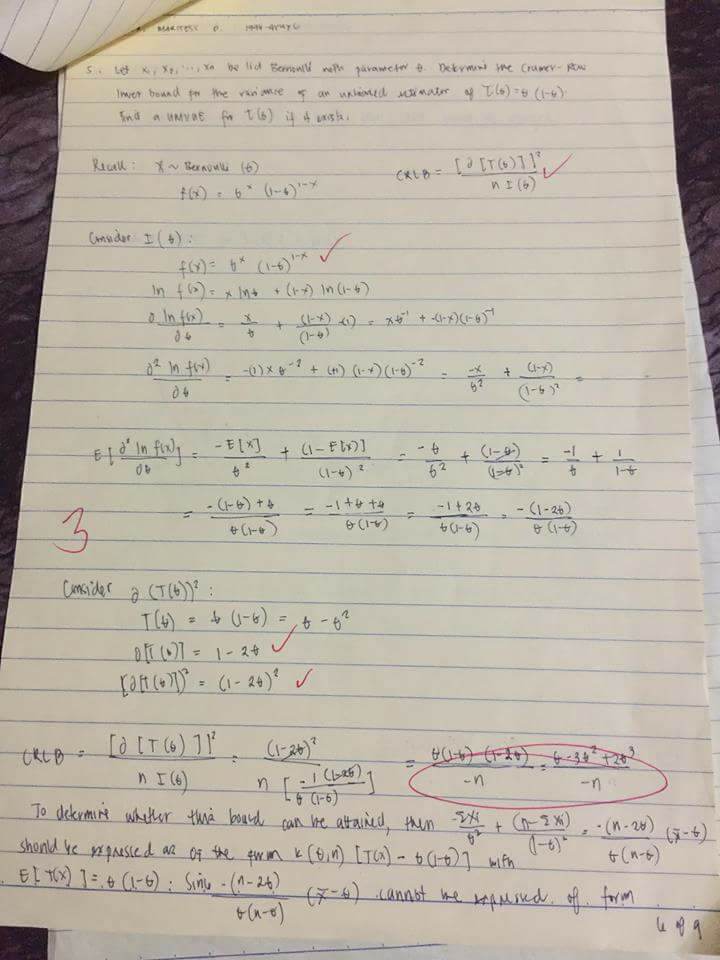 5. Let x₁, x₂, ..., xₙ be iid Bernoulli with parameter θ. Determine the Cramer-Rao
lower bound for the variance of an unbiased estimator of T(θ) = θ(1-θ).
Find a UMVUE for T(θ) if it exists.
Recall: X ~ Bernoulli (θ)
f(x) = θ^x (1-θ)^{1-x}
CRLB = [∂[T(θ)]]² / n I(θ)
Consider I(θ):
f(x) = θ^x (1-θ)^{1-x}
ln f(x) = x ln θ + (1-x) ln (1-θ)
∂ ln f(x) / ∂θ = x/θ + (1-x)/(1-θ) (-1) = xθ^{-1} + -(1-x)(1-θ)^{-1}
∂² ln f(x) / ∂θ = -(1) x θ^{-2} + (+1) (1-x)(1-θ)^{-2} = -x/θ² + (1-x)/(1-θ)² =
E[∂² ln f(x) / ∂θ] = -E[x]/θ² + (1-E[x])/(1-θ)² = -θ/θ² + (1-θ)/(1-θ)² = -1/θ + 1/(1-θ)
= (-(1-θ)+θ)/(θ(1-θ)) = (-1+θ+θ)/(θ(1-θ)) = (-1+2θ)/(θ(1-θ)) = -(1-2θ)/(θ(1-θ))
3
Consider ∂(T(θ))²:
T(θ) = θ(1-θ) = θ - θ²
∂[T(θ)] = 1-2θ
[∂[T(θ)]]² = (1-2θ)²
CRLB = [∂[T(θ)]]² / n I(θ) = (1-2θ)² / n[-1(1-2θ)/(θ(1-θ))] = θ(1-θ)(1-2θ)/-n = (θ-3θ²+2θ³)/-n
To determine whether this bound can be attained, then -Σxi/θ² + (n-Σxi)/(1-θ)² = -(n-2θ)/(θ(n-θ)) (x̄-θ)
should be expressed as of the form k(θ,n) [T(x) - θ(1-θ)] with
E[T(x)] = θ(1-θ). Since -(n-2θ)/(θ(n-θ)) (x̄-θ) cannot be expressed of form
6 of 9